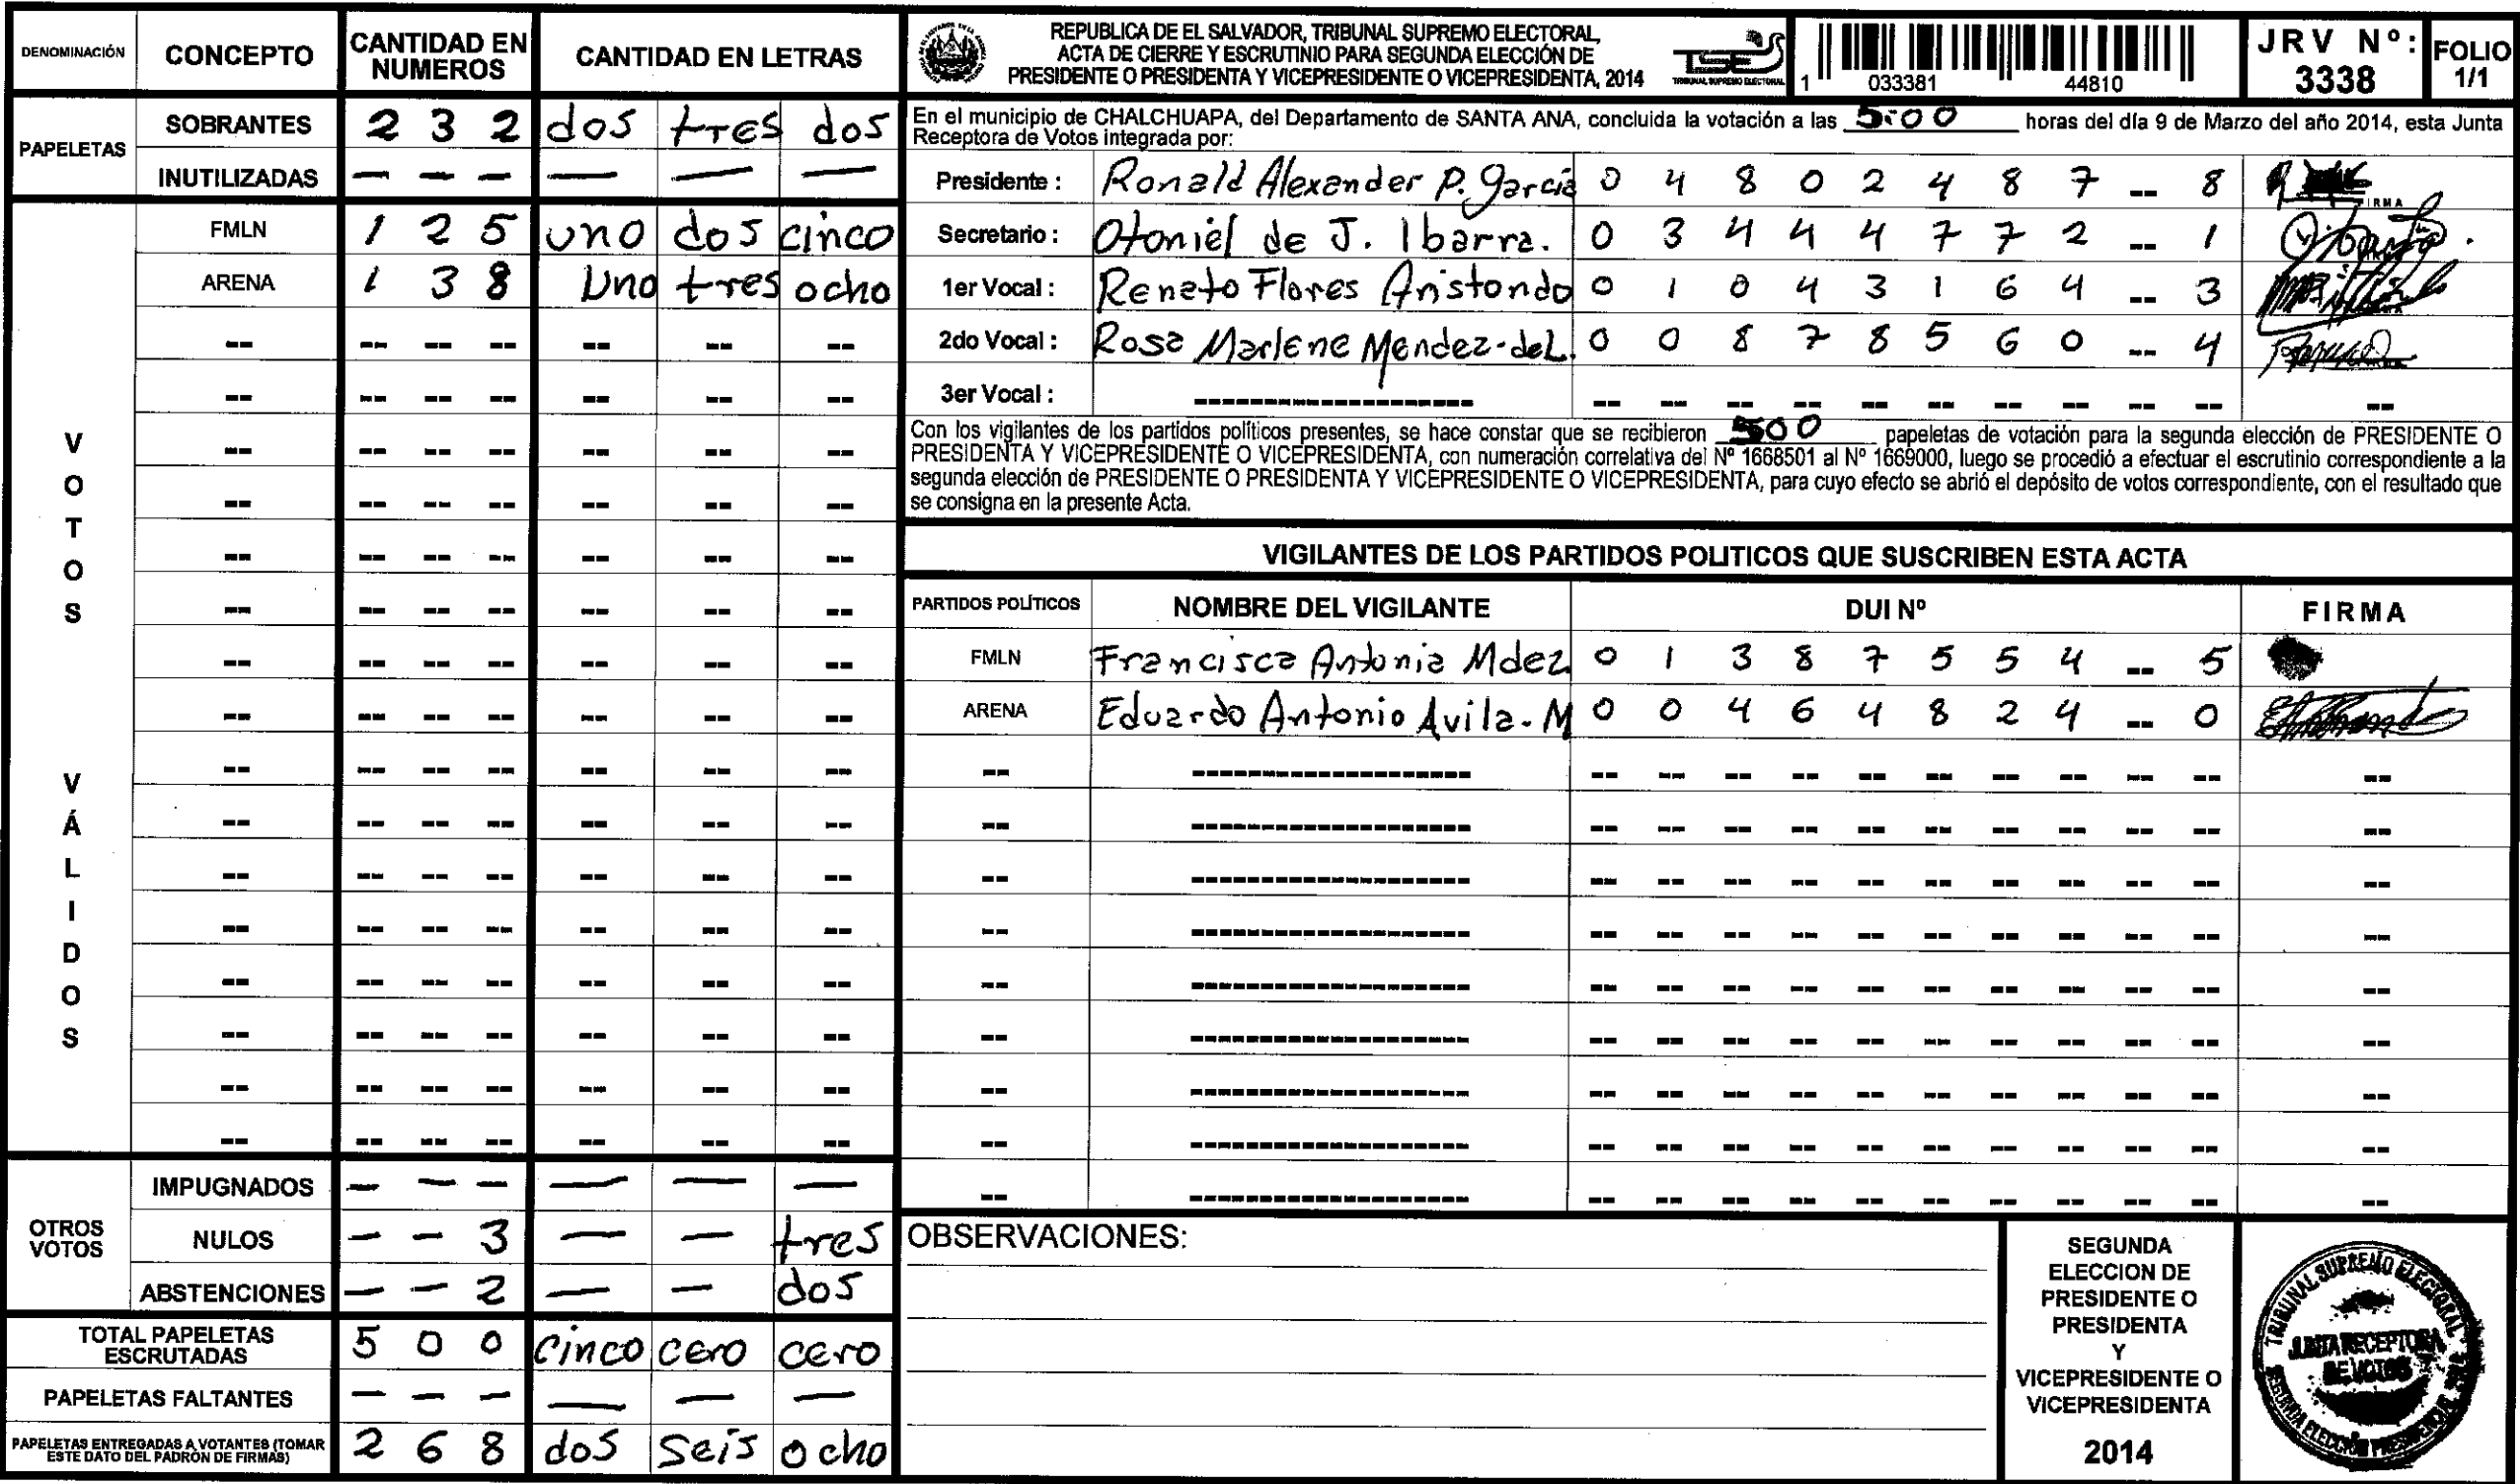 DENOMINACIÓN CONCEPTO CANTIDAD EN NUMEROS CANTIDAD EN LETRAS
PAPELETAS
SOBRANTES 2 3 2 dos tres dos
INUTILIZADAS — — — — — —
VOTOS VÁLIDOS
FMLN 1 2 5 uno dos cinco
ARENA 1 3 8 Uno tres ocho
-- -- -- -- -- -- --
-- -- -- -- -- -- --
-- -- -- -- -- -- --
-- -- -- -- -- -- --
-- -- -- -- -- -- --
-- -- -- -- -- -- --
-- -- -- -- -- -- --
-- -- -- -- -- -- --
-- -- -- -- -- -- --
-- -- -- -- -- -- --
-- -- -- -- -- -- --
-- -- -- -- -- -- --
-- -- -- -- -- -- --
-- -- -- -- -- -- --
-- -- -- -- -- -- --
-- -- -- -- -- -- --
OTROS VOTOS
IMPUGNADOS — — — — — —
NULOS — — 3 — — tres
ABSTENCIONES — — 2 — — dos
TOTAL PAPELETAS ESCRUTADAS 5 0 0 cinco cero cero
PAPELETAS FALTANTES — — — — — —
PAPELETAS ENTREGADAS A VOTANTES (TOMAR ESTE DATO DEL PADRÓN DE FIRMAS) 2 6 8 dos seis ocho
REPUBLICA DE EL SALVADOR, TRIBUNAL SUPREMO ELECTORAL,
ACTA DE CIERRE Y ESCRUTINIO PARA SEGUNDA ELECCIÓN DE
PRESIDENTE O PRESIDENTA Y VICEPRESIDENTE O VICEPRESIDENTA, 2014
TSE
TRIBUNAL SUPREMO ELECTORAL
1 033381 44810
JRV Nº: 3338
FOLIO 1/1
En el municipio de CHALCHUAPA, del Departamento de SANTA ANA, concluida la votación a las 5:00 horas del día 9 de Marzo del año 2014, esta Junta
Receptora de Votos integrada por:
Presidente : Ronald Alexander P. García 0 4 8 0 2 4 8 7 -- 8 FIRMA
Secretario : Otoniel de J. Ibarra. 0 3 4 4 4 7 7 2 -- 1
1er Vocal : Renato Flores Aristondo 0 1 0 4 3 1 6 4 -- 3
2do Vocal : Rosa Marlene Mendez-deL. 0 0 8 7 8 5 6 0 -- 4
3er Vocal : ------------------ -- -- -- -- -- -- -- -- -- -- --
Con los vigilantes de los partidos políticos presentes, se hace constar que se recibieron 500 papeletas de votación para la segunda elección de PRESIDENTE O
PRESIDENTA Y VICEPRESIDENTE O VICEPRESIDENTA, con numeración correlativa del Nº 1668501 al Nº 1669000, luego se procedió a efectuar el escrutinio correspondiente a la
segunda elección de PRESIDENTE O PRESIDENTA Y VICEPRESIDENTE O VICEPRESIDENTA, para cuyo efecto se abrió el depósito de votos correspondiente, con el resultado que
se consigna en la presente Acta.
VIGILANTES DE LOS PARTIDOS POLITICOS QUE SUSCRIBEN ESTA ACTA
PARTIDOS POLÍTICOS NOMBRE DEL VIGILANTE DUI Nº FIRMA
FMLN Francisca Antonia Mdez 0 1 3 8 7 5 5 4 -- 5
ARENA Eduardo Antonio Avila-M 0 0 4 6 4 8 2 4 -- 0
-- ------------------ -- -- -- -- -- -- -- -- -- -- --
-- ------------------ -- -- -- -- -- -- -- -- -- -- --
-- ------------------ -- -- -- -- -- -- -- -- -- -- --
-- ------------------ -- -- -- -- -- -- -- -- -- -- --
-- ------------------ -- -- -- -- -- -- -- -- -- -- --
-- ------------------ -- -- -- -- -- -- -- -- -- -- --
-- ------------------ -- -- -- -- -- -- -- -- -- -- --
-- ------------------ -- -- -- -- -- -- -- -- -- -- --
-- ------------------ -- -- -- -- -- -- -- -- -- -- --
OBSERVACIONES:
SEGUNDA
ELECCION DE
PRESIDENTE O
PRESIDENTA
Y
VICEPRESIDENTE O
VICEPRESIDENTA
2014
TRIBUNAL SUPREMO ELECTORAL
JUNTA RECEPTORA
DE VOTOS
SEGUNDA ELECCIÓN PRESIDENCIAL